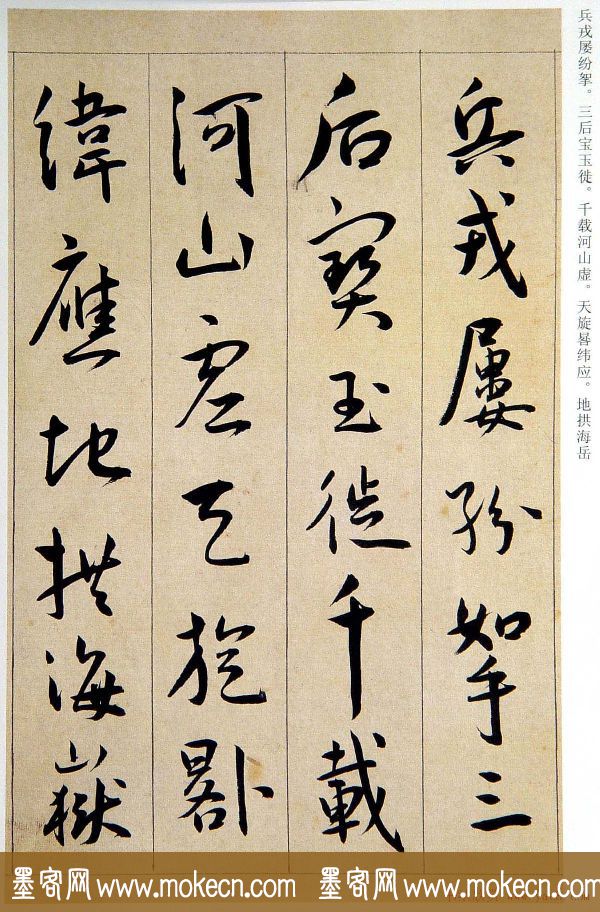 兵戎屡纷挐。三后宝玉徙。千载河山虚。天旋晷纬应。地拱海岳
兵戎屢紛挐三
后寶玉徙千載
河山虛天旋晷
緯應地拱海嶽
墨客网 www.mokecn.com 墨客网 www.mokecn.com